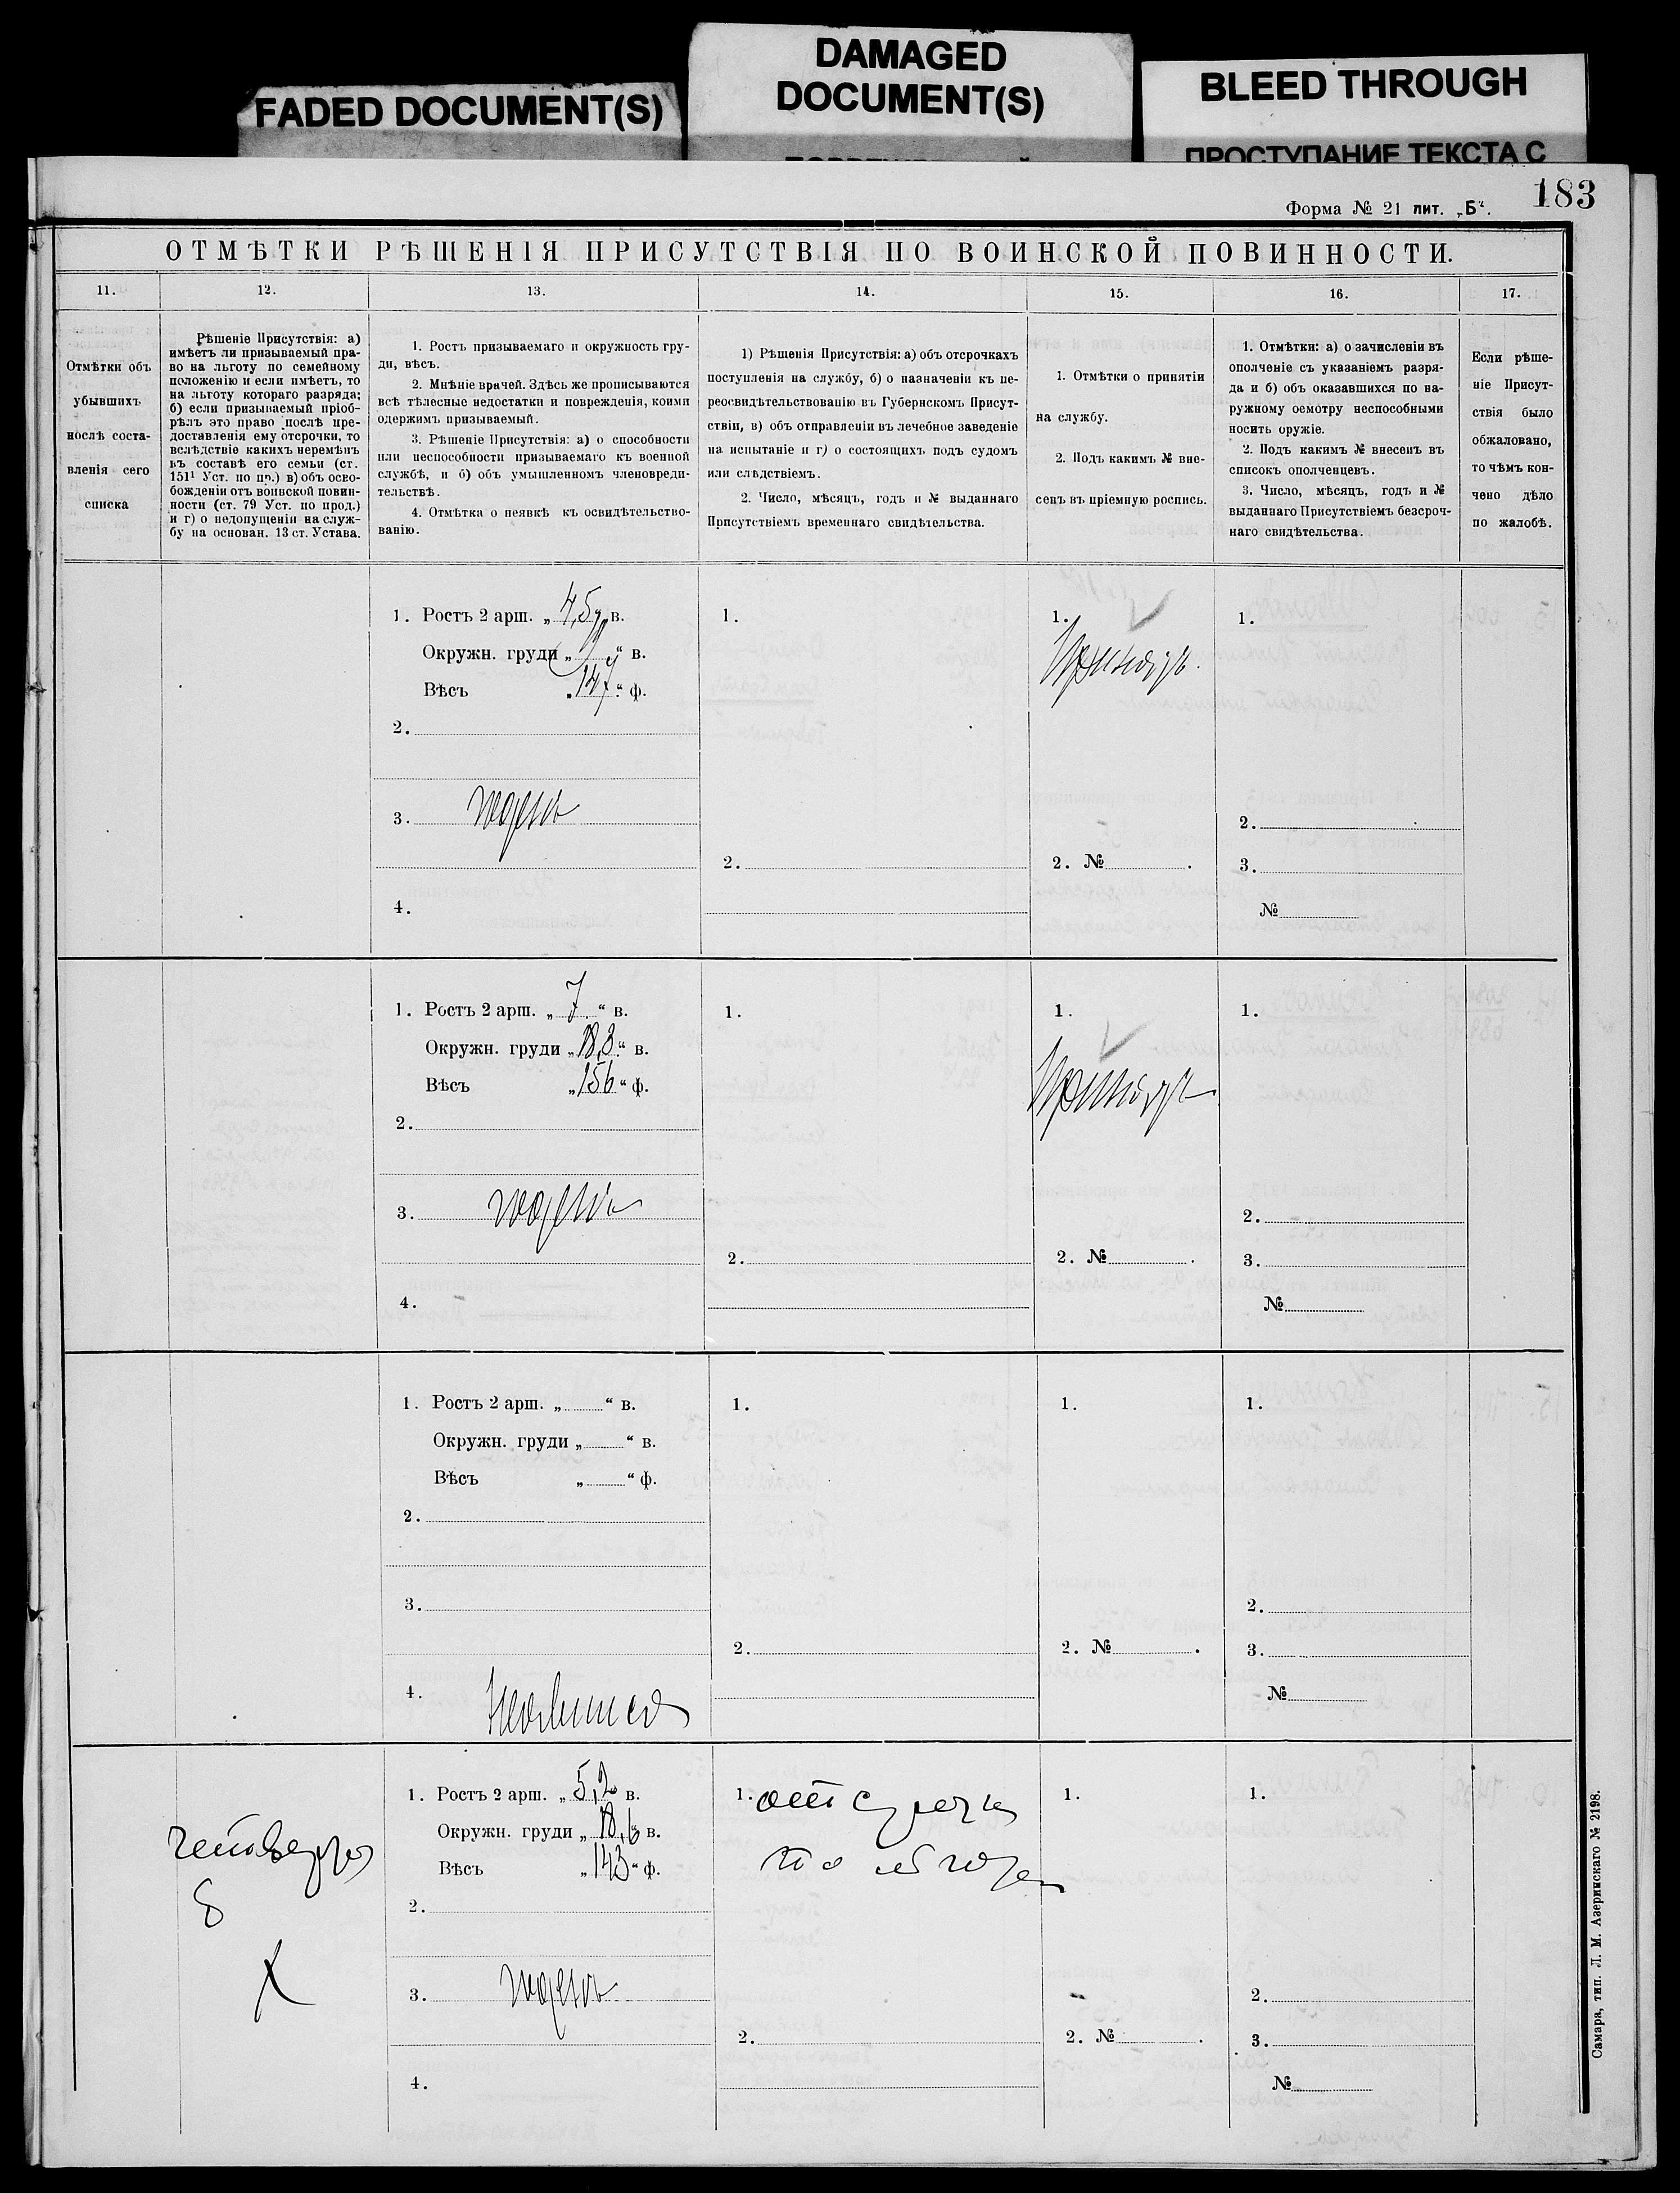 FADED DOCUMENT(S)
DAMAGED
DOCUMENT(S)
BLEED THROUGH
ПРОСТУПАНИЕ ТЕКСТА С
183
Форма № 21 лит. „Б“.
ОТМѢТКИ РѢШЕНІЯ ПРИСУТСТВІЯ ПО ВОИНСКОЙ ПОВИННОСТИ.
11. 12. 13. 14. 15. 16. 17.
Отмѣтки объ
убывшихъ
послѣ соста-
вленія сего
списка
Рѣшеніе Присутствія: а)
имѣетъ ли призываемый пра-
во на льготу по семейному
положенію и если имѣетъ, то
на льготу котораго разряда;
б) если призываемый пріоб-
рѣлъ это право послѣ пре-
доставленія ему отсрочки, то
вслѣдствіе какихъ перемѣнъ
въ составѣ его семьи (ст.
151¹ Уст. по пр.) в) объ осво-
божденіи отъ воинской повин-
ности (ст. 79 Уст. по прод.)
и г) о недопущеніи на служ-
бу на основан. 13 ст. Устава.
1. Ростъ призываемаго и окружность гру-
ди, вѣсъ.
2. Мнѣніе врачей. Здѣсь же прописываются
всѣ тѣлесные недостатки и поврежденія, коими
одержимъ призываемый.
3. Рѣшеніе Присутствія: а) о способности
или неспособности призываемаго къ военной
службѣ, и б) объ умышленномъ членовреди-
тельствѣ.
4. Отмѣтка о неявкѣ къ освидѣтельство-
ванію.
1) Рѣшенія Присутствія: а) объ отсрочкахъ
поступленія на службу, б) о назначеніи къ пе-
реосвидѣтельствованію въ Губернскомъ Присут-
ствіи, в) объ отправленіи въ лечебное заведеніе
на испытаніе и г) о состоящихъ подъ судомъ
или слѣдствіемъ.
2. Число, мѣсяцъ, годъ и № выданнаго
Присутствіемъ временнаго свидѣтельства.
1. Отмѣтки о принятіи
на службу.
2. Подъ какимъ № вне-
сенъ въ пріемную роспись.
1. Отмѣтки: а) о зачисленіи въ
ополченіе съ указаніемъ разря-
да и б) объ оказавшихся по на-
ружному осмотру неспособными
носить оружіе.
2. Подъ какимъ № внесенъ въ
списокъ ополченцевъ.
3. Число, мѣсяцъ, годъ и №
выданнаго Присутствіемъ безсроч-
наго свидѣтельства.
Если рѣше-
ніе Присут-
ствія было
обжаловано,
то чѣмъ кон-
чено дѣло
по жалобѣ.
1. Ростъ 2 арш. „ 4,5 “ в.
Окружн. груди „ “ в.
Вѣсъ „ 147 “ ф.
2.
3. годенъ
4.
1.
2.
1.
Принятъ.
2. № .
1.
2.
3.
№
1. Ростъ 2 арш. „ 7 “ в.
Окружн. груди „ 18,3 “ в.
Вѣсъ „ 156 “ ф.
2.
3. годенъ
4.
1.
2.
1.
Принятъ
2. № .
1.
2.
3.
№
1. Ростъ 2 арш. „ “ в.
Окружн. груди „ “ в.
Вѣсъ „ “ ф.
2.
3.
4. Неявился
1.
2.
1.
2. № .
1.
2.
3.
№
1. Ростъ 2 арш. „ 5,2 в.
Окружн. груди „ 18,6 в.
Вѣсъ „ 143 “ ф.
2.
3. годенъ
4.
1.
2.
1.
2. № .
1.
2.
3.
№
Самара, тип. Л. М. Азеринскаго № 2198.